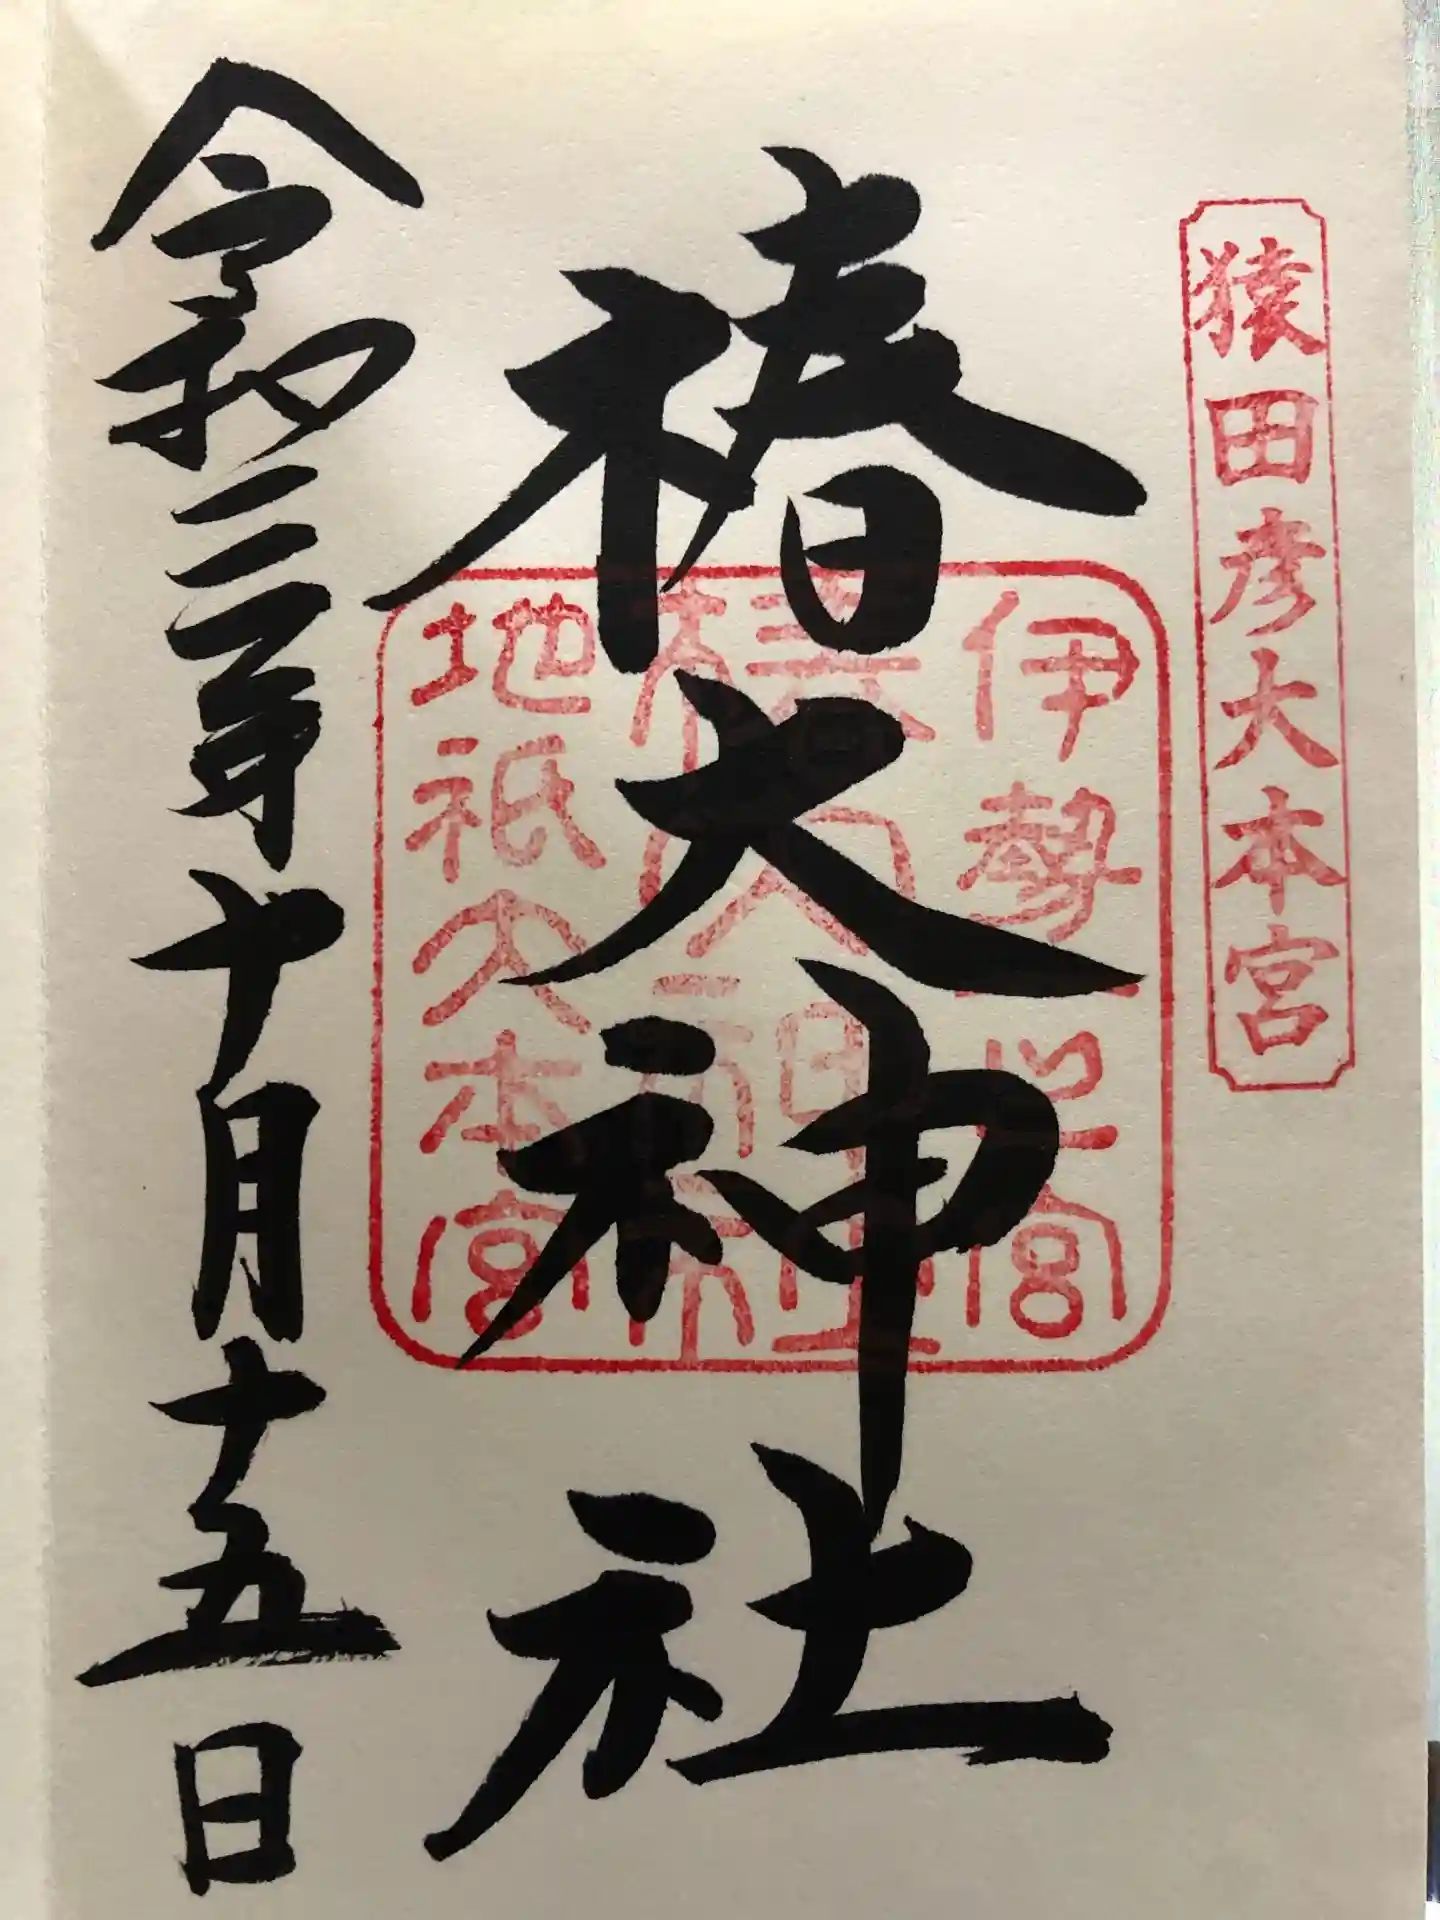 猿田彦大本宮
椿大神社
伊勢一之宮
椿大神社
地祇大本宮
令和三年十月十五日